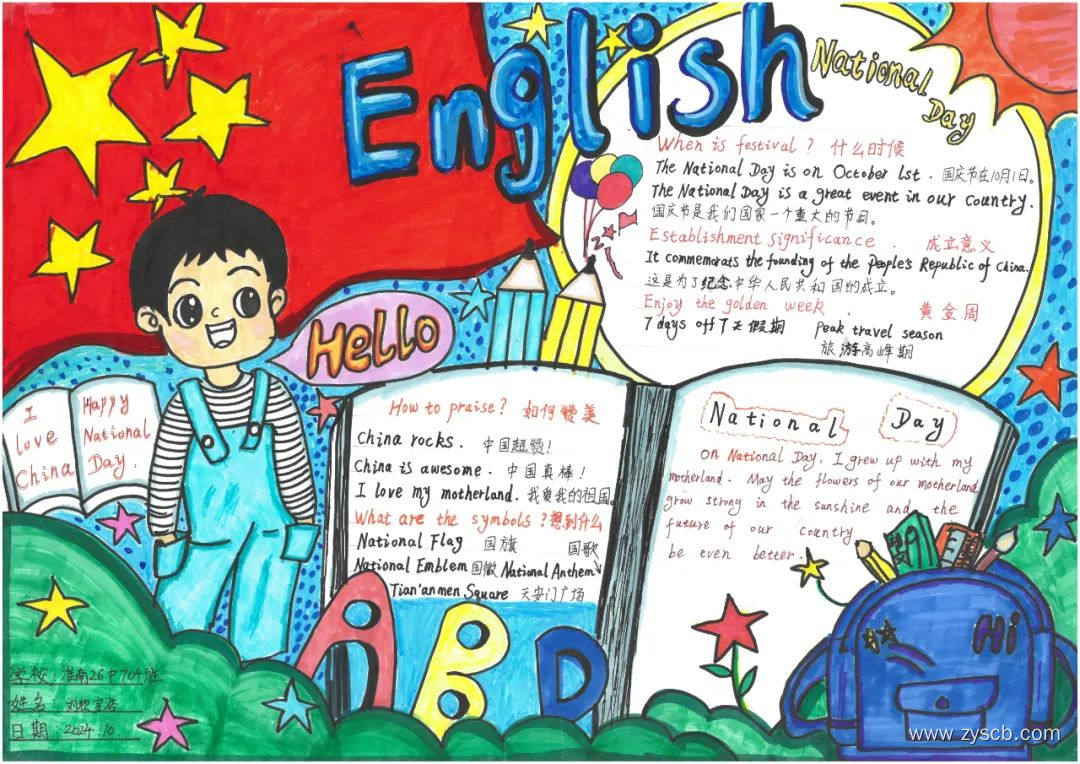 English
National
Day
When is festival? 什么时候
The National Day is on October 1st. 国庆节在10月1日。
The National Day is a great event in our country.
国庆节是我们国家一个重大的节日。
Establishment significance. 成立意义
It commemorats the founding of the People's Republic of China.
这是为了纪念中华人民共和国的成立。
Enjoy the golden week. 黄金周
7 days off 7天假期 Peak travel season
旅游高峰期
Hello
I
love
China
Happy
National
Day.
How to praise? 如何赞美
China rocks. 中国超赞!
China is awesome. 中国真棒!
I love my motherland. 我爱我的祖国。
What are the symbols? 想到什么
National Flag 国旗 国歌
National Emblem 国徽 National Anthem
Tian'anmen Square 天安门广场
National Day
On National Day, I grew up with my
motherland. May the flowers of our motherland
grow strong in the sunshine and the
future of our country
be even better.
ABD
Hi
学校:淮南26中704班
姓名:刘
日期:2024.10.
www.zyscb.com